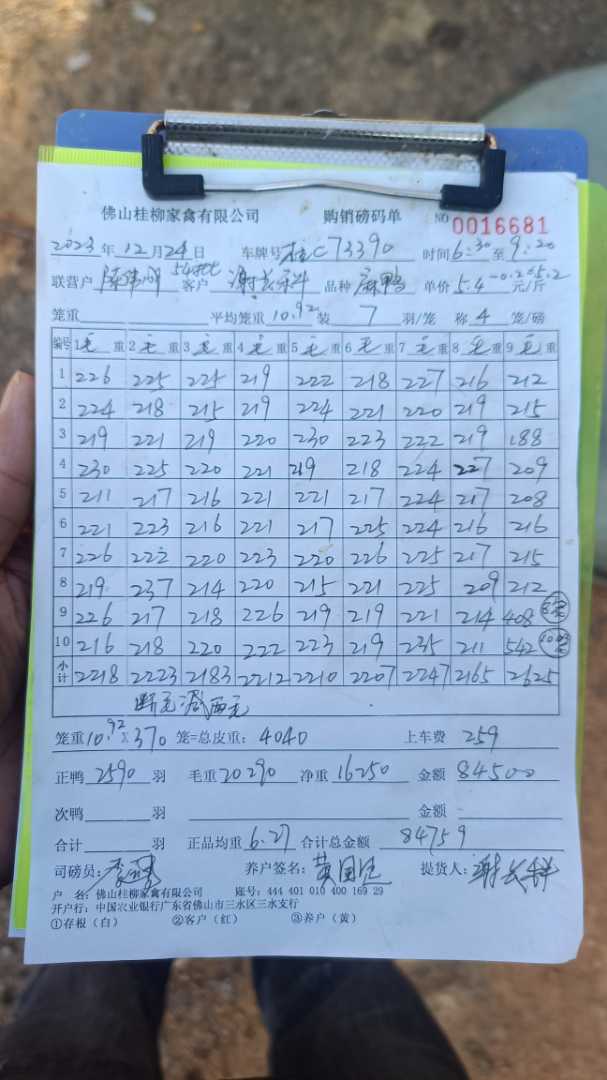 佛山桂柳家禽有限公司 购销磅码单 NO 0016681
2023 年 12 月 24 日 车牌号 桂C73390 时间 6:30 至 9:20
联营户 客户 品种 麻鸭 单价 5.4-0.2=5.2 元/斤
笼重 平均笼重 10.92 装 7 羽/笼 称 4 笼/磅
编号 1毛重 2毛重 3毛重 4毛重 5毛重 6毛重 7毛重 8毛重 9毛重
1 226 225 225 219 222 218 227 216 212
2 224 218 215 219 224 221 220 219 215
3 219 221 219 220 230 223 222 219 188
4 230 225 220 221 219 218 224 227 209
5 211 217 216 221 221 217 224 217 208
6 221 223 216 221 217 225 224 216 216
7 226 222 220 223 220 226 225 217 215
8 219 237 214 220 215 221 225 209 212
9 226 217 218 226 219 219 221 214 408
10 216 218 220 222 223 219 235 211 542
小计 2218 2223 2183 2212 2210 2207 2247 2165 2625
笼重 10.92 X 370 笼=总皮重: 4040 上车费 259
正鸭 2590 羽 毛重 20290 净重 16250 金额 84500
次鸭 羽 金额
合计 羽 正品均重 6.27 合计总金额 84759
司磅员: 养户签名: 提货人:
户 名: 佛山桂柳家禽有限公司 账号: 444 401 010 400 169 29
开户行: 中国农业银行广东省佛山市三水区三水支行
①存根(白) ②客户(红) ③养户(黄)